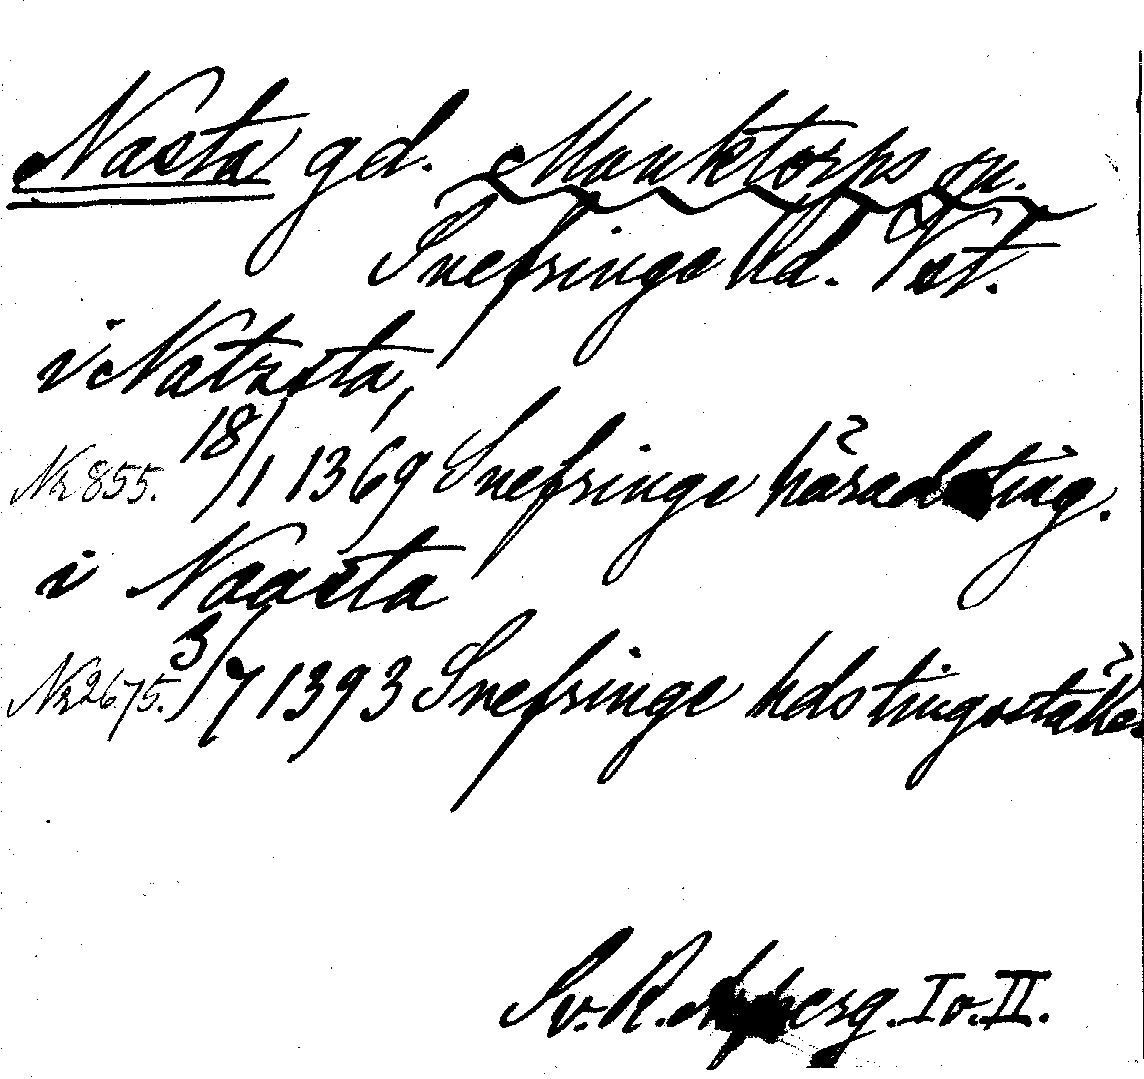 Nasta gd. Munktorps sn.
Snefringe hd. Vst.
i Natzsta,
Nr 855. 18/1 1369 Snefringe häradsting.
i Naasta
Nr 2675. 3/7 1393 Snefringe hds tingsställe.
Sv. R. perg. I o. II.